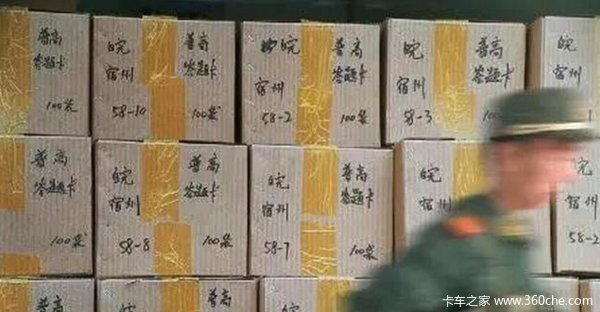 普高
答题卡
100袋
皖
宿州
58-10
普高
答题卡
100袋
皖
宿州
58-2
普高
答题卡
100袋
皖
宿州
58-3
普高
答题卡
100袋
普高
答题卡
100袋
皖
宿州
58-8
普高
答题卡
100袋
皖
宿州
58-7
普高
答题卡
100袋
皖
宿州
58-2
皖
普高
皖
普高
皖
卡车之家 www.360che.com